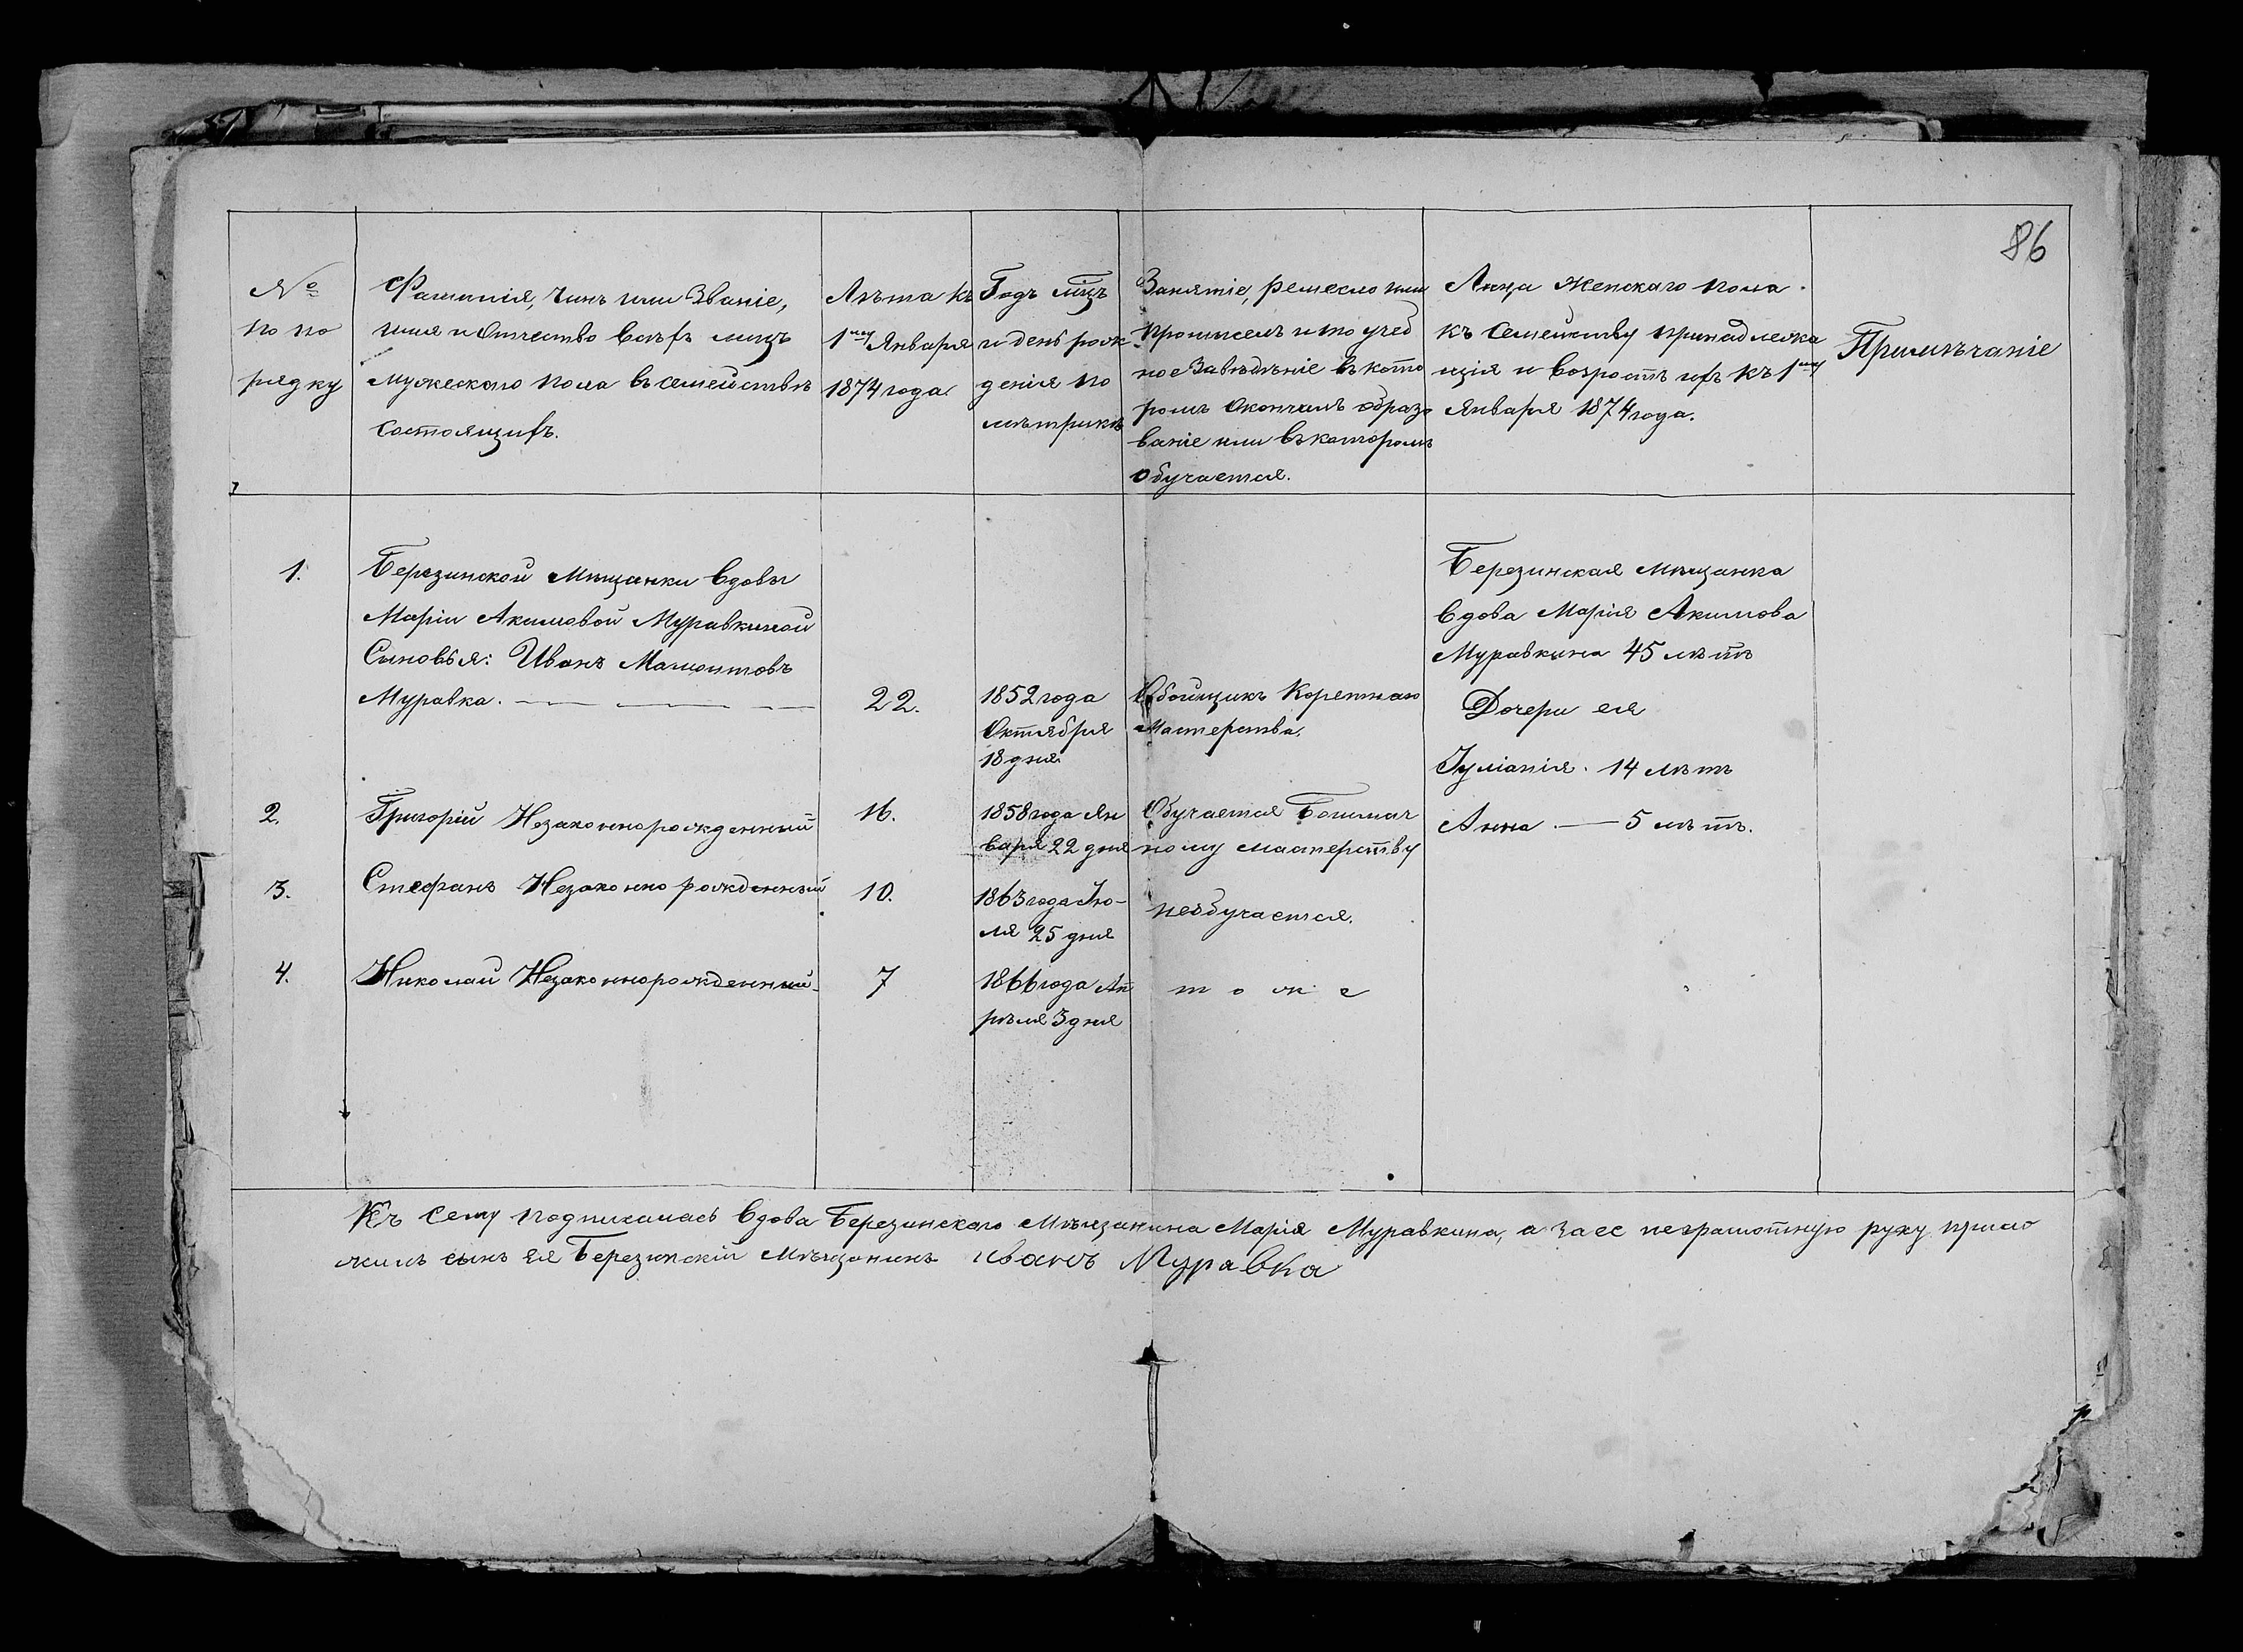 86
№
по по
рядку
Фамилія, Чинъ или Званіе,
имя и Отчество всѣхъ лицъ
мужескаго пола въ семействѣ
состоящихъ.
Лѣта къ
1му Января
1874 года.
Годъ мѣцъ
и день рож
денія по
мѣтрикѣ
Занятіе, ремесло или
промыселъ и то учеб
ное Завѣдѣніе въ кото
ромъ Окончилъ образо
ваніе или въ которомъ
обучается.
Лица женскаго пола
къ Семейству принадлежа
щія и возростъ ихъ къ 1му
Января 1874 года.
Примѣчаніе
1.
Березинской Мѣщанки вдовы
Маріи Акимовой Муравкиной
Сыновья: Иванъ Мамонтовъ
Муравка.
22.
1852 года
Октября
18 дня
Обойщикъ Коретнаго
Мастерства.
Березинская мѣщанка
вдова Марія Акимова
Муравкина 45 лѣтъ
Дочери ея
Іуліанія. 14 лѣтъ
Анна — 5 лѣтъ.
2.
Григорій Незаконнорожденный
16.
1858 года Ян
варя 22 дня
Обучается Башмач
ному мастерству
3.
Стефанъ Незаконно рожденный
10.
1863 года Iю-
ля 25 дня
необучается.
4.
Николай Незаконнорожденный
7
1866 года Ап
рѣля 3 дня
тоже
Къ сему подписалась вдова Березинскаго мѣщанина Марія Муравкина, а за ее неграмотную руку прило
жилъ сынъ ея Березинскій мѣщанинъ иванъ Муравка